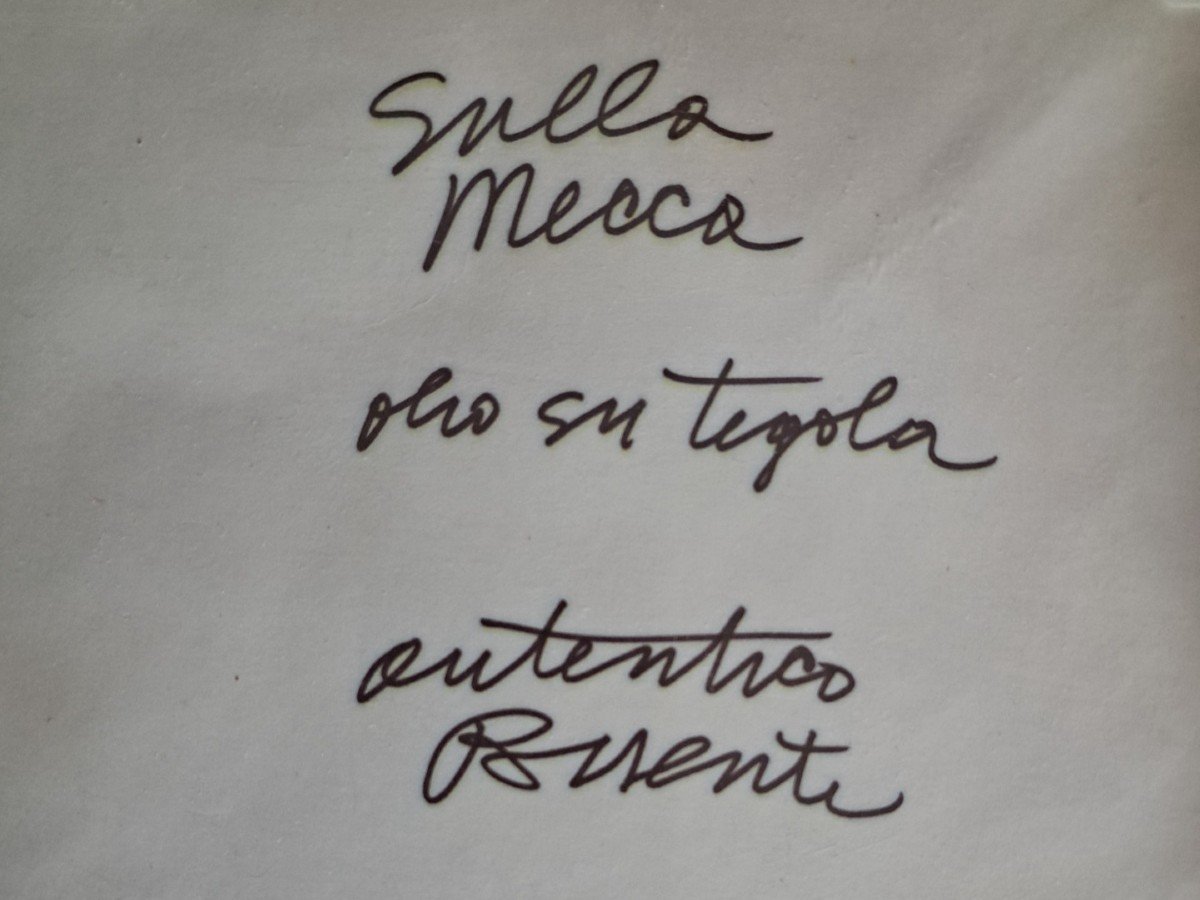 Sulla
Mecca
olio su tegola
autentico
Busente